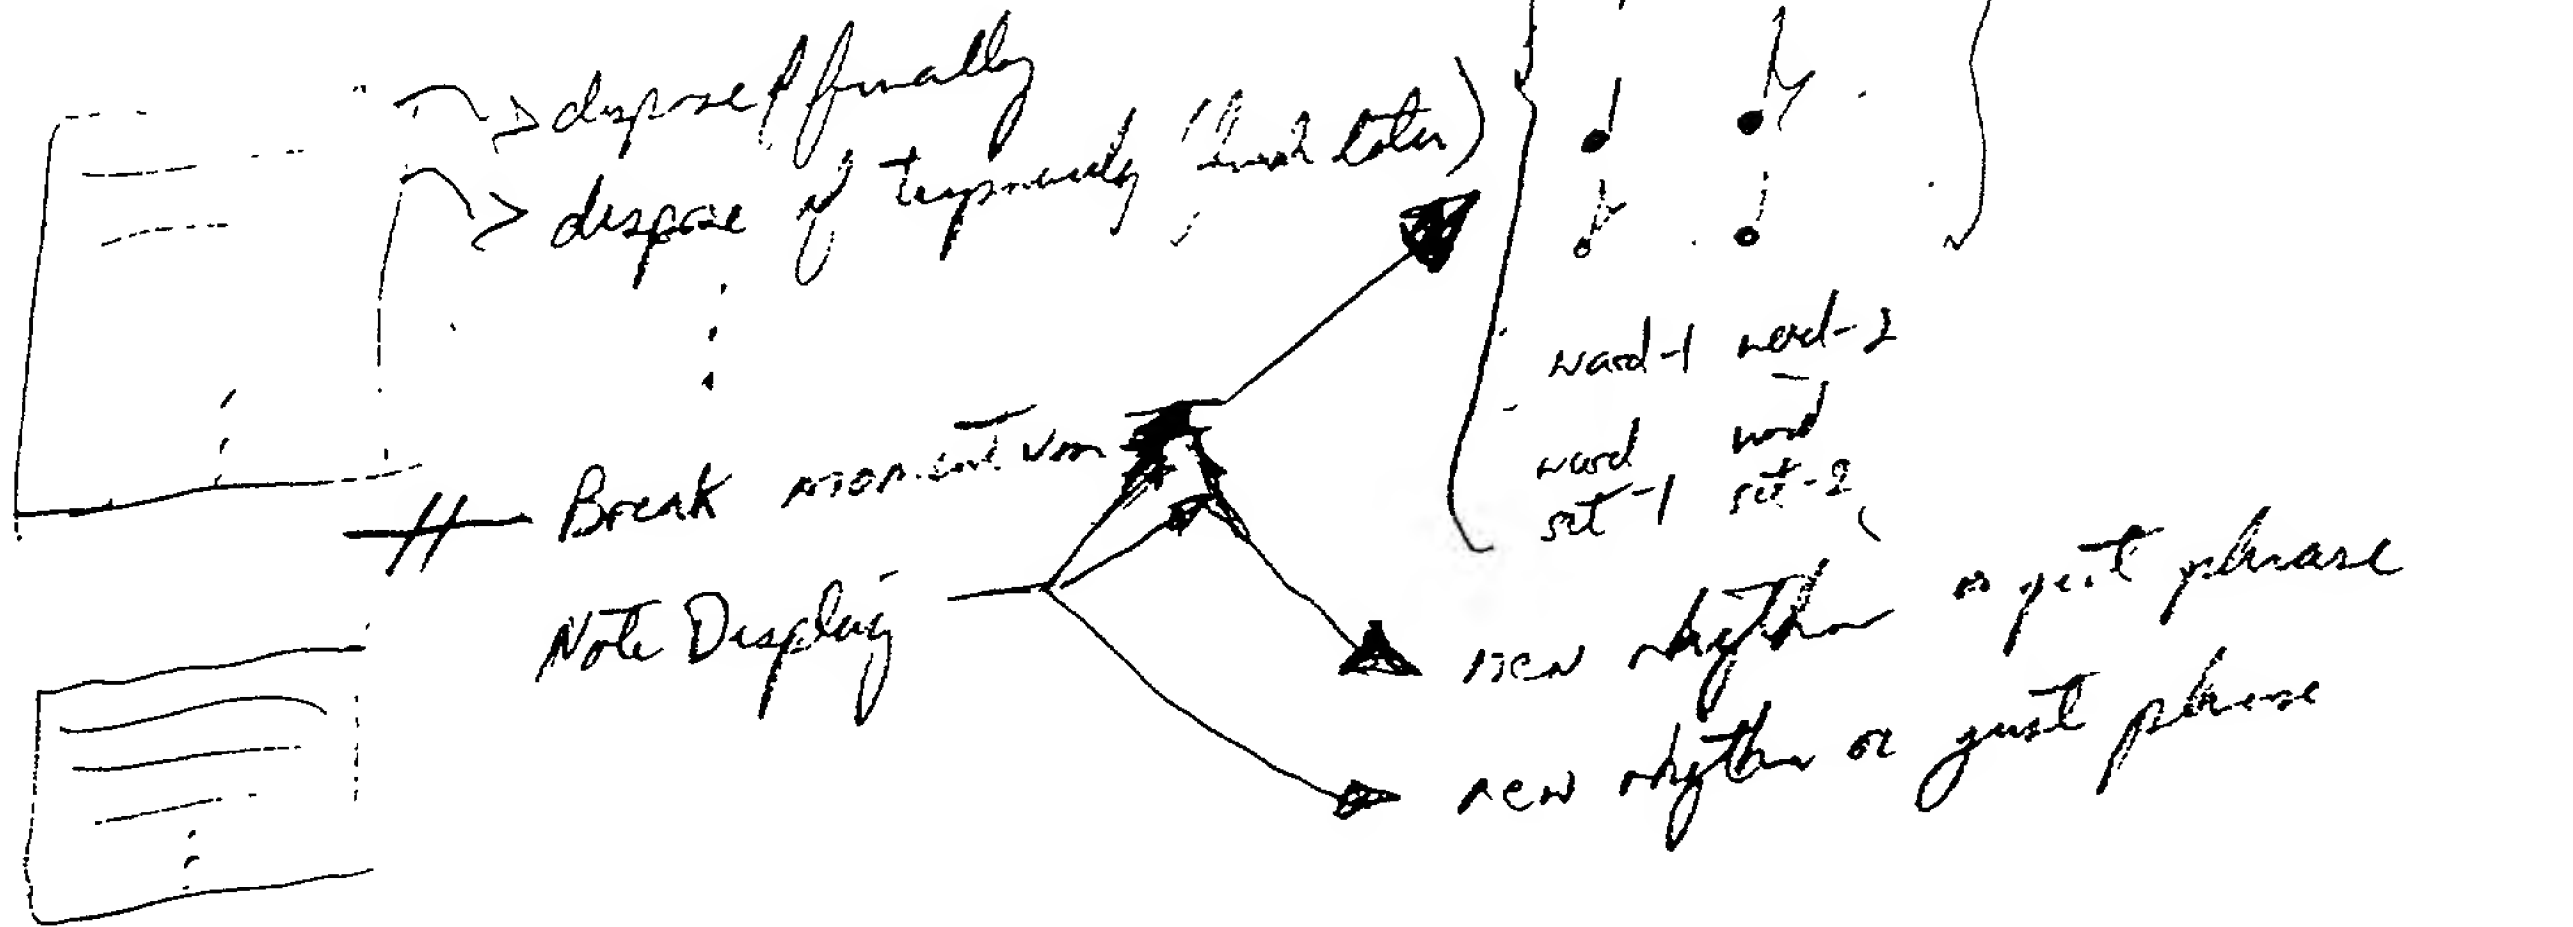 dispose finally
dispose of temporarily (finish later)
word-1 word-2
word word
set-1 set-2
Break momentum
Note Display
new rhythm or just phrase
new rhythm or just phrase